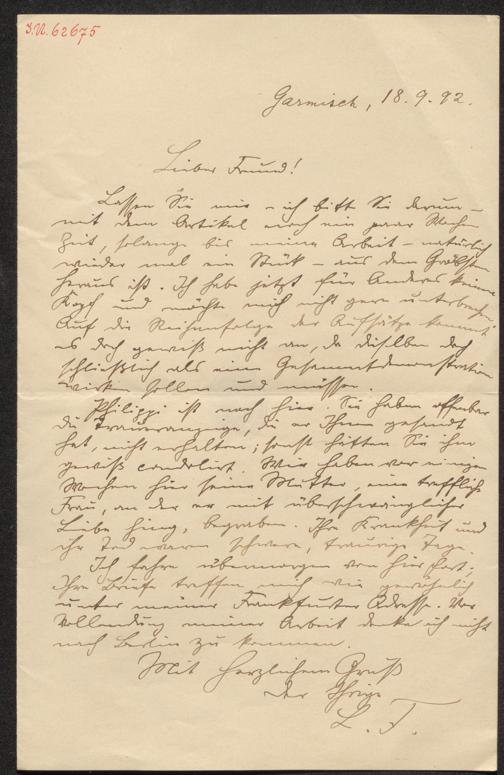 I.N. 62675
Garmisch, 18. 9. 92.
Lieber Freund!
Lassen Sie mir – ich bitte Sie darum –
mit dem Artikel noch ein paar Wochen
Zeit, solange bis meine Arbeit – natürlich
wieder mal ein Stück – aus dem Gröbsten
heraus ist. Ich habe jetzt für Anderes keinen
Kopf und möchte mich nicht gern unterbrechen.
Auf die Reihenfolge der Aufsätze kommt
es doch gewiß nicht an, da dieselben doch
schließlich als eine Gesammtdemonstration
wirken sollen und müssen.
Philippi ist noch hier. Sie haben offenbar
die Traueranzeige, die er Ihnen gesandt
hat, nicht erhalten; sonst hätten Sie ihm
gewiß condolirt. Wir haben vor einigen
Wochen hier seine Mutter, eine treffliche
Frau, an der er mit überschwänglicher
Liebe hing, begraben. Ihre Krankheit und
ihr Tod waren schwere, traurige Tage.
Ich fahre übermorgen von hier fort.
Ihre Briefe treffen mich wie gewöhnlich
unter meiner Frankfurter Adresse. Vor
Vollendung meiner Arbeit denke ich nicht
nach Berlin zu kommen.
Mit herzlichem Gruß
der Ihrige
L. F.